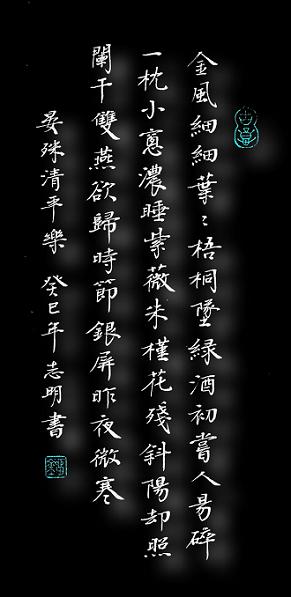 金風細細葉〻梧桐墜綠酒初嘗人易碎
一枕小窻濃睡紫薇朱槿花殘斜陽却照
闌干雙燕欲歸時節銀屏昨夜微寒
晏殊清平樂 癸巳年志明書